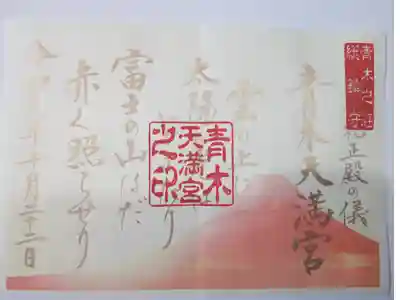 青木之庄
総鎮守
祝正殿の儀
青木天満宮
雲の上に
太陽
り
富士の山はだ
赤く照らせり
令和元年十月二十二日
青木
天満宮
之印